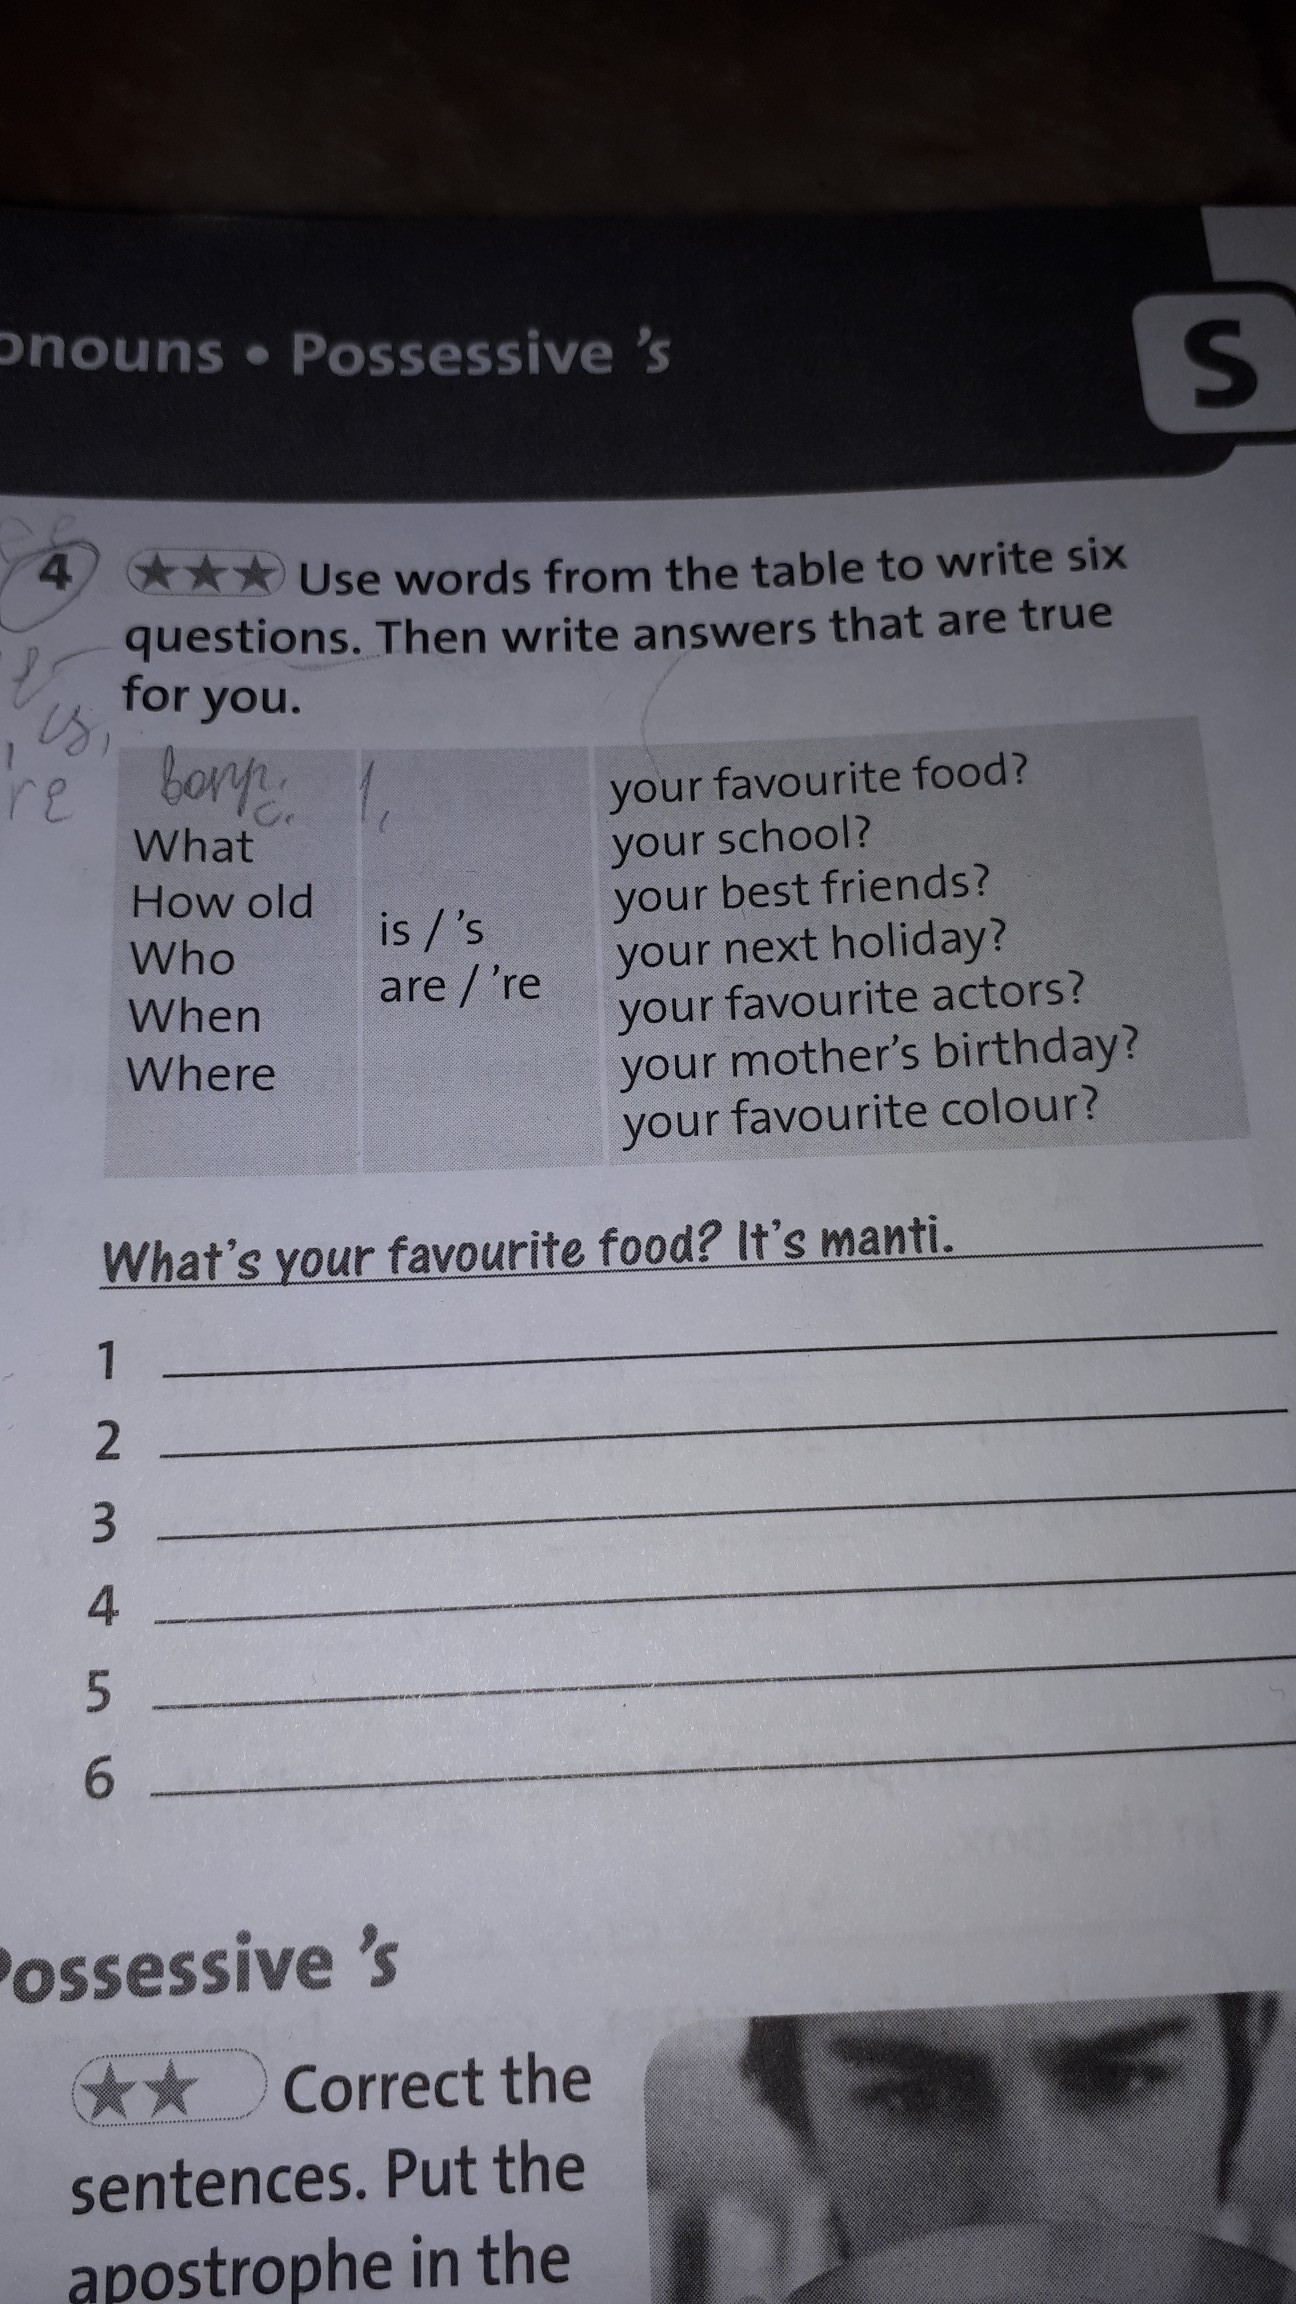 onouns • Possessive 's
S
4 ★★★ Use words from the table to write six
questions. Then write answers that are true
for you.
is,
're
вопр.
с.
What
How old
Who
When
Where
is / 's
are / 're
your favourite food?
your school?
your best friends?
your next holiday?
your favourite actors?
your mother's birthday?
your favourite colour?
What's your favourite food? It's manti.
1
2
3
4
5
6
Possessive 's
★★ Correct the
sentences. Put the
apostrophe in the